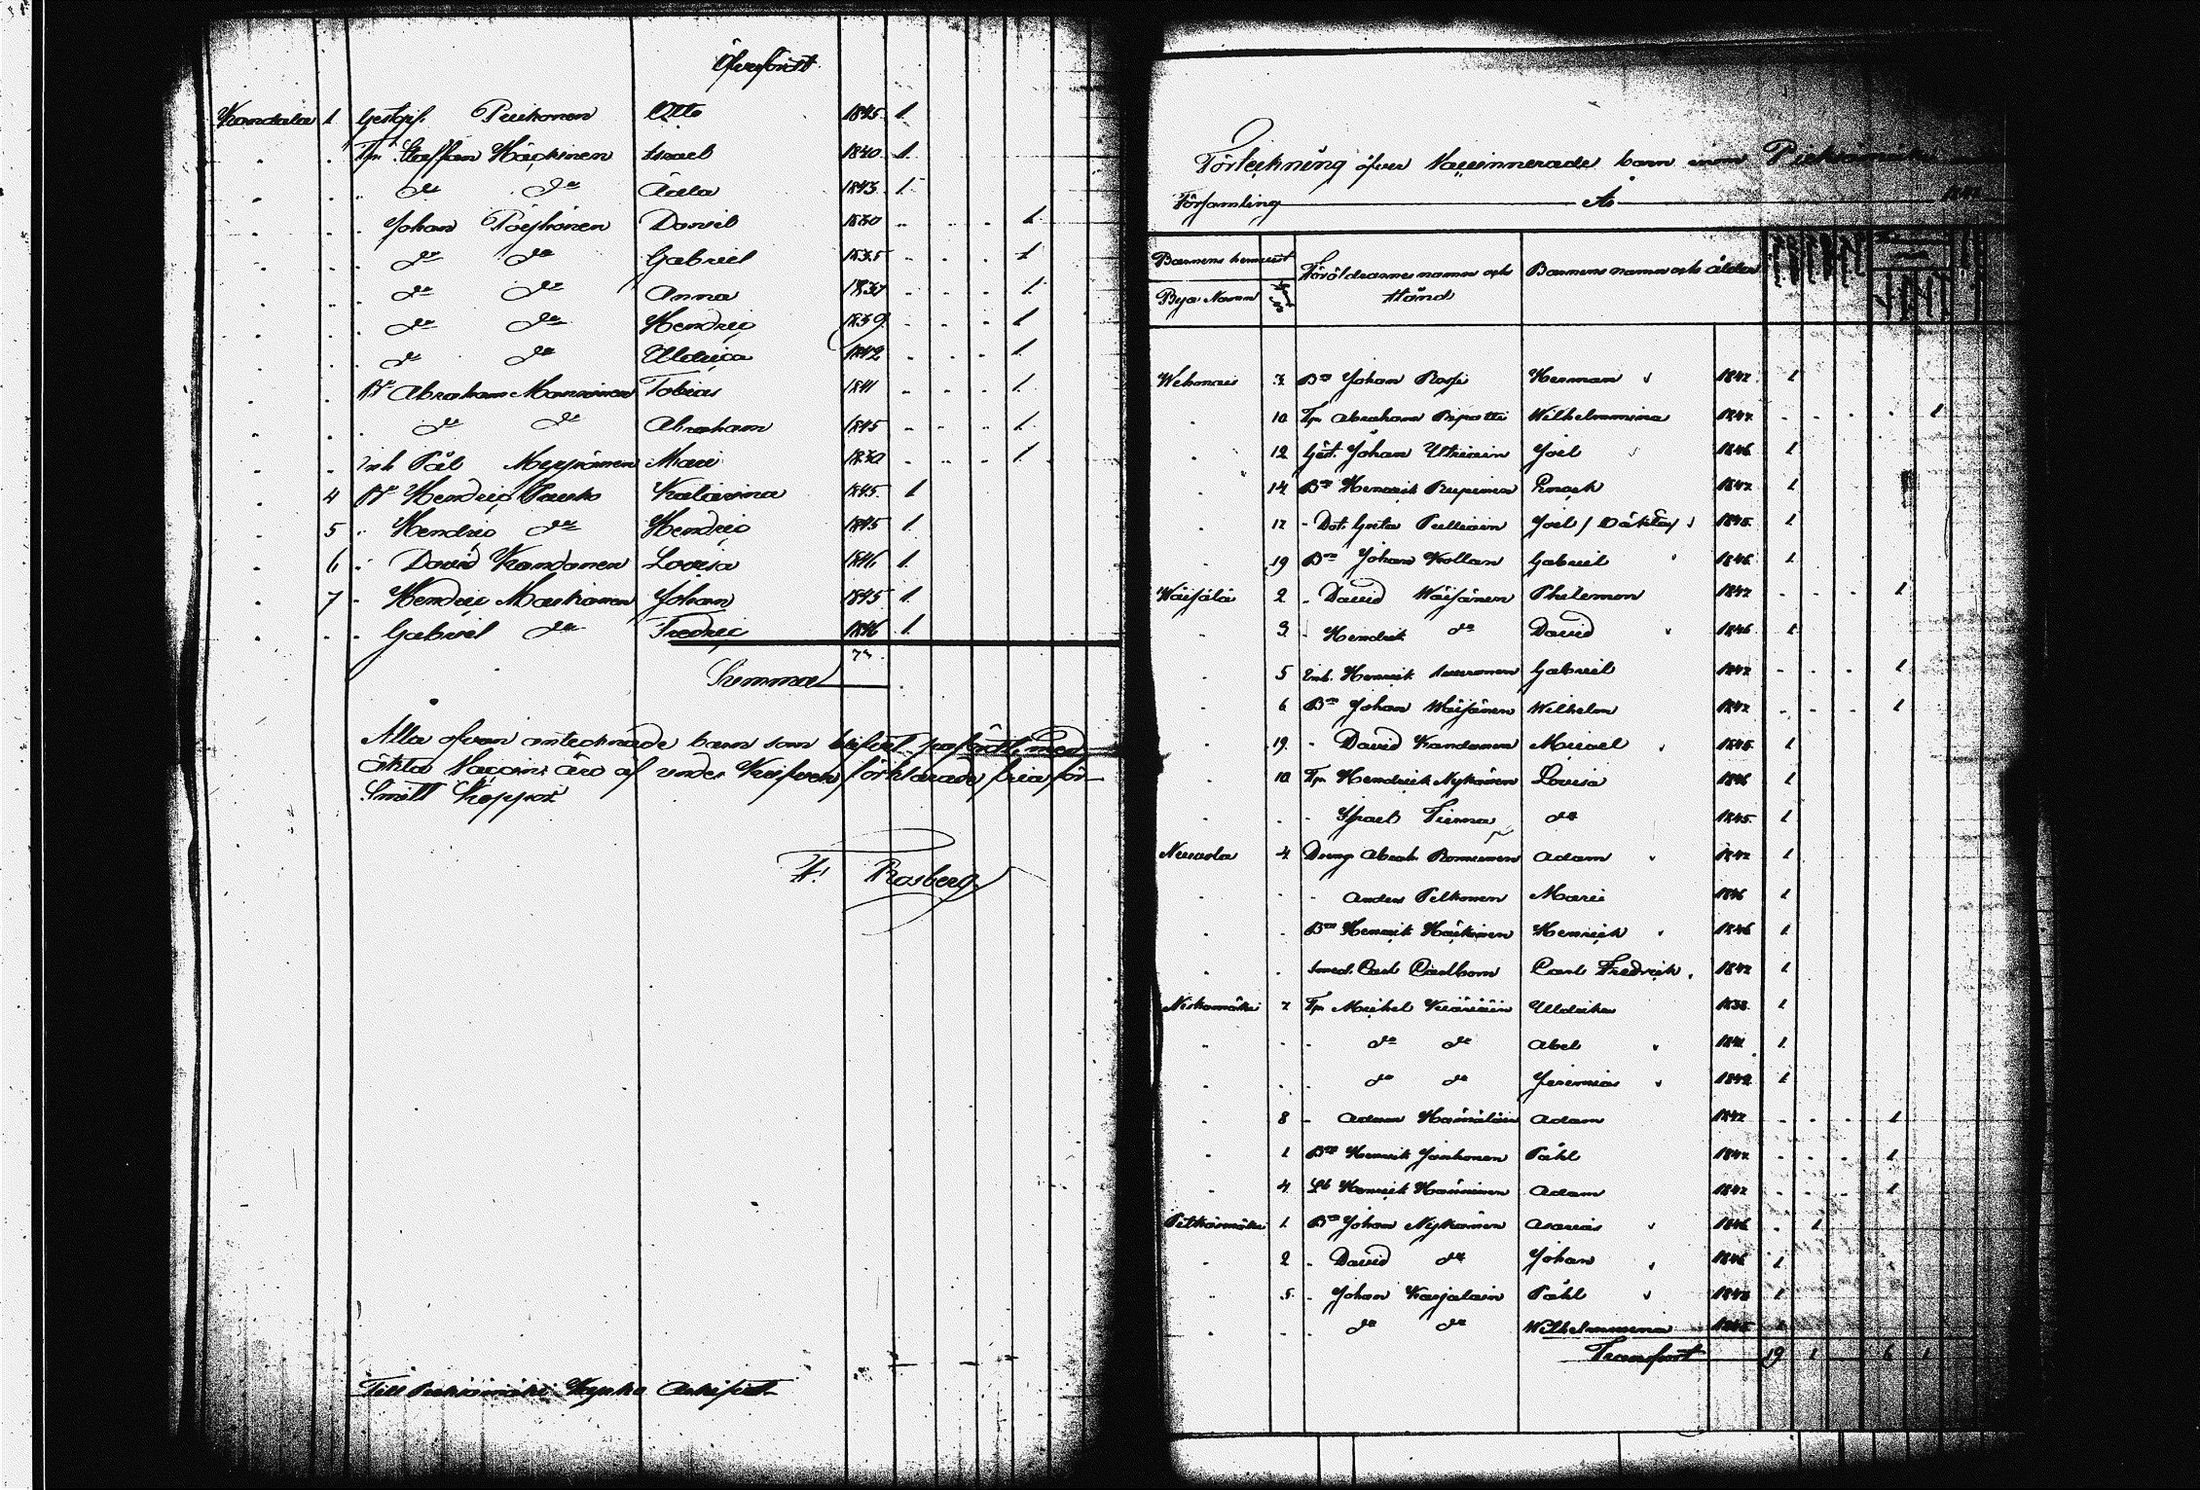 Öfverfördt
Kandala 1 Gestgif. Puikonen Otto 1845 1
. . Tpr Staffan Häckinen Israel 1840 1
. . do do Adla 1843 1
. . Johan Pöyhönen Daniel 1830 . . . 1
. . do do Gabriel 1835 . . . 1
. . do do Anna 1837 . . . 1
. . do do Hendric 1839 . . . 1
. . do do Uldrica 1842 . . . 1
. . Bd Abraham Manninen Tobias 1841 . . . 1
. . do do Abraham 1845 . . . 1
. . Inh Pål Meppänen Mari 1830 . . . 1
. 4 Bd Hendric Paukο Katarina 1845 1
. 5 . Hendric do Hendric 1845 1
. 6 . David Kandanen Lovisa 1846 1
. 7 . Hendric Maskonen Johan 1845 1
. . . Gabriel do Fredric 1846 1
Summa
Alla ofvan antecknade barn som blifvit med
äkta Vaccin äro af under förklarade fria för
Smitt Koppor
H. Rosberg
Till Pieksämäki Kyrko Arkif
Förteckning öfver Vaccinerade barn inom Pieksämäki
Församling År 1847
Barnens hemvist Föräldrarnes namn och stånd Barnens namn och ålder
Bya Namn
Wehmais 7 Bd Johan Herman 1847 1
. 10 Tpr Abraham Wilhelmmina 1847 . . . . 1
. 12 Gäst. Johan Utriain Joel 1846 1
. 14 Bd Henrick Enock 1847 1
. 17 - Dot. Greta Pulliain Joel / Oäkta / 1845 1
. 19 Bd Johan Kollan Gabriel 1846 1
Wäisälä 2 - David Wäisänen Philemon 1847 . . . 1
. 3 - Hendrik do David 1846 1
. 5 Inh. Henrik Gabriel 1847 . . . 1
. 6 Bd Johan Wäisänen Wilhelm 1847 . . . 1
. 19 - David Kandanen Micael 1845 1
. 10 Tpr Hendrick Nykänen Lovisa 1846 1
. . - Israel do 1845 1
Neuvola 4 Dreng Abrah. Romunen Adam 1847 1
. . - Anders Pelkonen Mari 1846 1
. . Bd Henrik Häckinen Henrick 1846 1
. . Smed. Carl Carlbom Carl Fredrick 1847 1
Niskamäki 7 Tpr Michel Kiäriäin Uldrika 1838 1
. . - do do Abel 1841 1
. . - do do Jeremias 1842 1
. 8 - Adam Hämäläin Adam 1847 . . . 1
. 1 Bd Henrik Janhonen Påhl 1847 . . . 1
. 4 Henrik Hänninen Adam 1847 . . . 1
Pitkämäki 1 Bd Johan Nykänen Asarias 1846 . 1
. 2 - David do Johan 1846 1
. 5 - Johan Karjalain Påhl 1842 1
. . - do do Wilhelmmina 1845 1
Transport 19 1 6 1